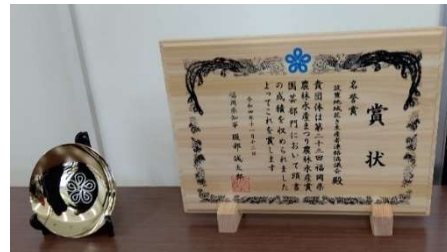 賞状
名誉賞
殿
貴団体は第二十三回福岡県
農林水産まつり農林水産賞
園芸部門において頭書
の成績を収められました
よってこれを賞します
福岡県知事 服部誠太郎